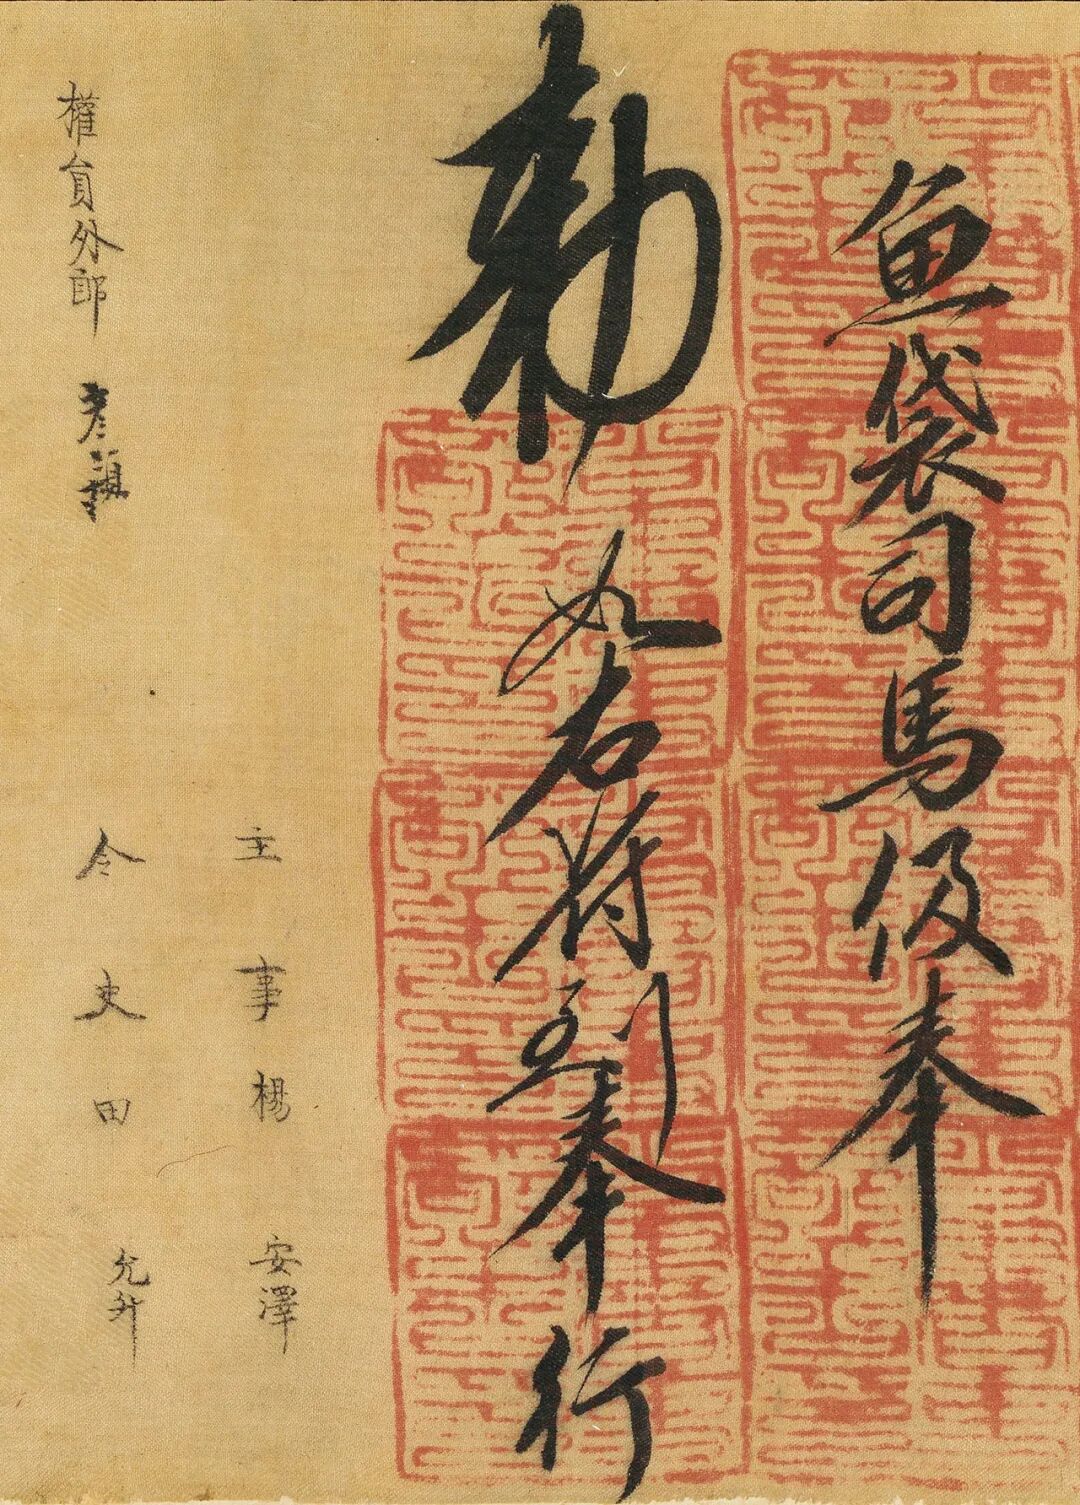 魚袋司馬伋奉
勅如右符到奉行
主事楊安澤
權員外郎
令史田允升